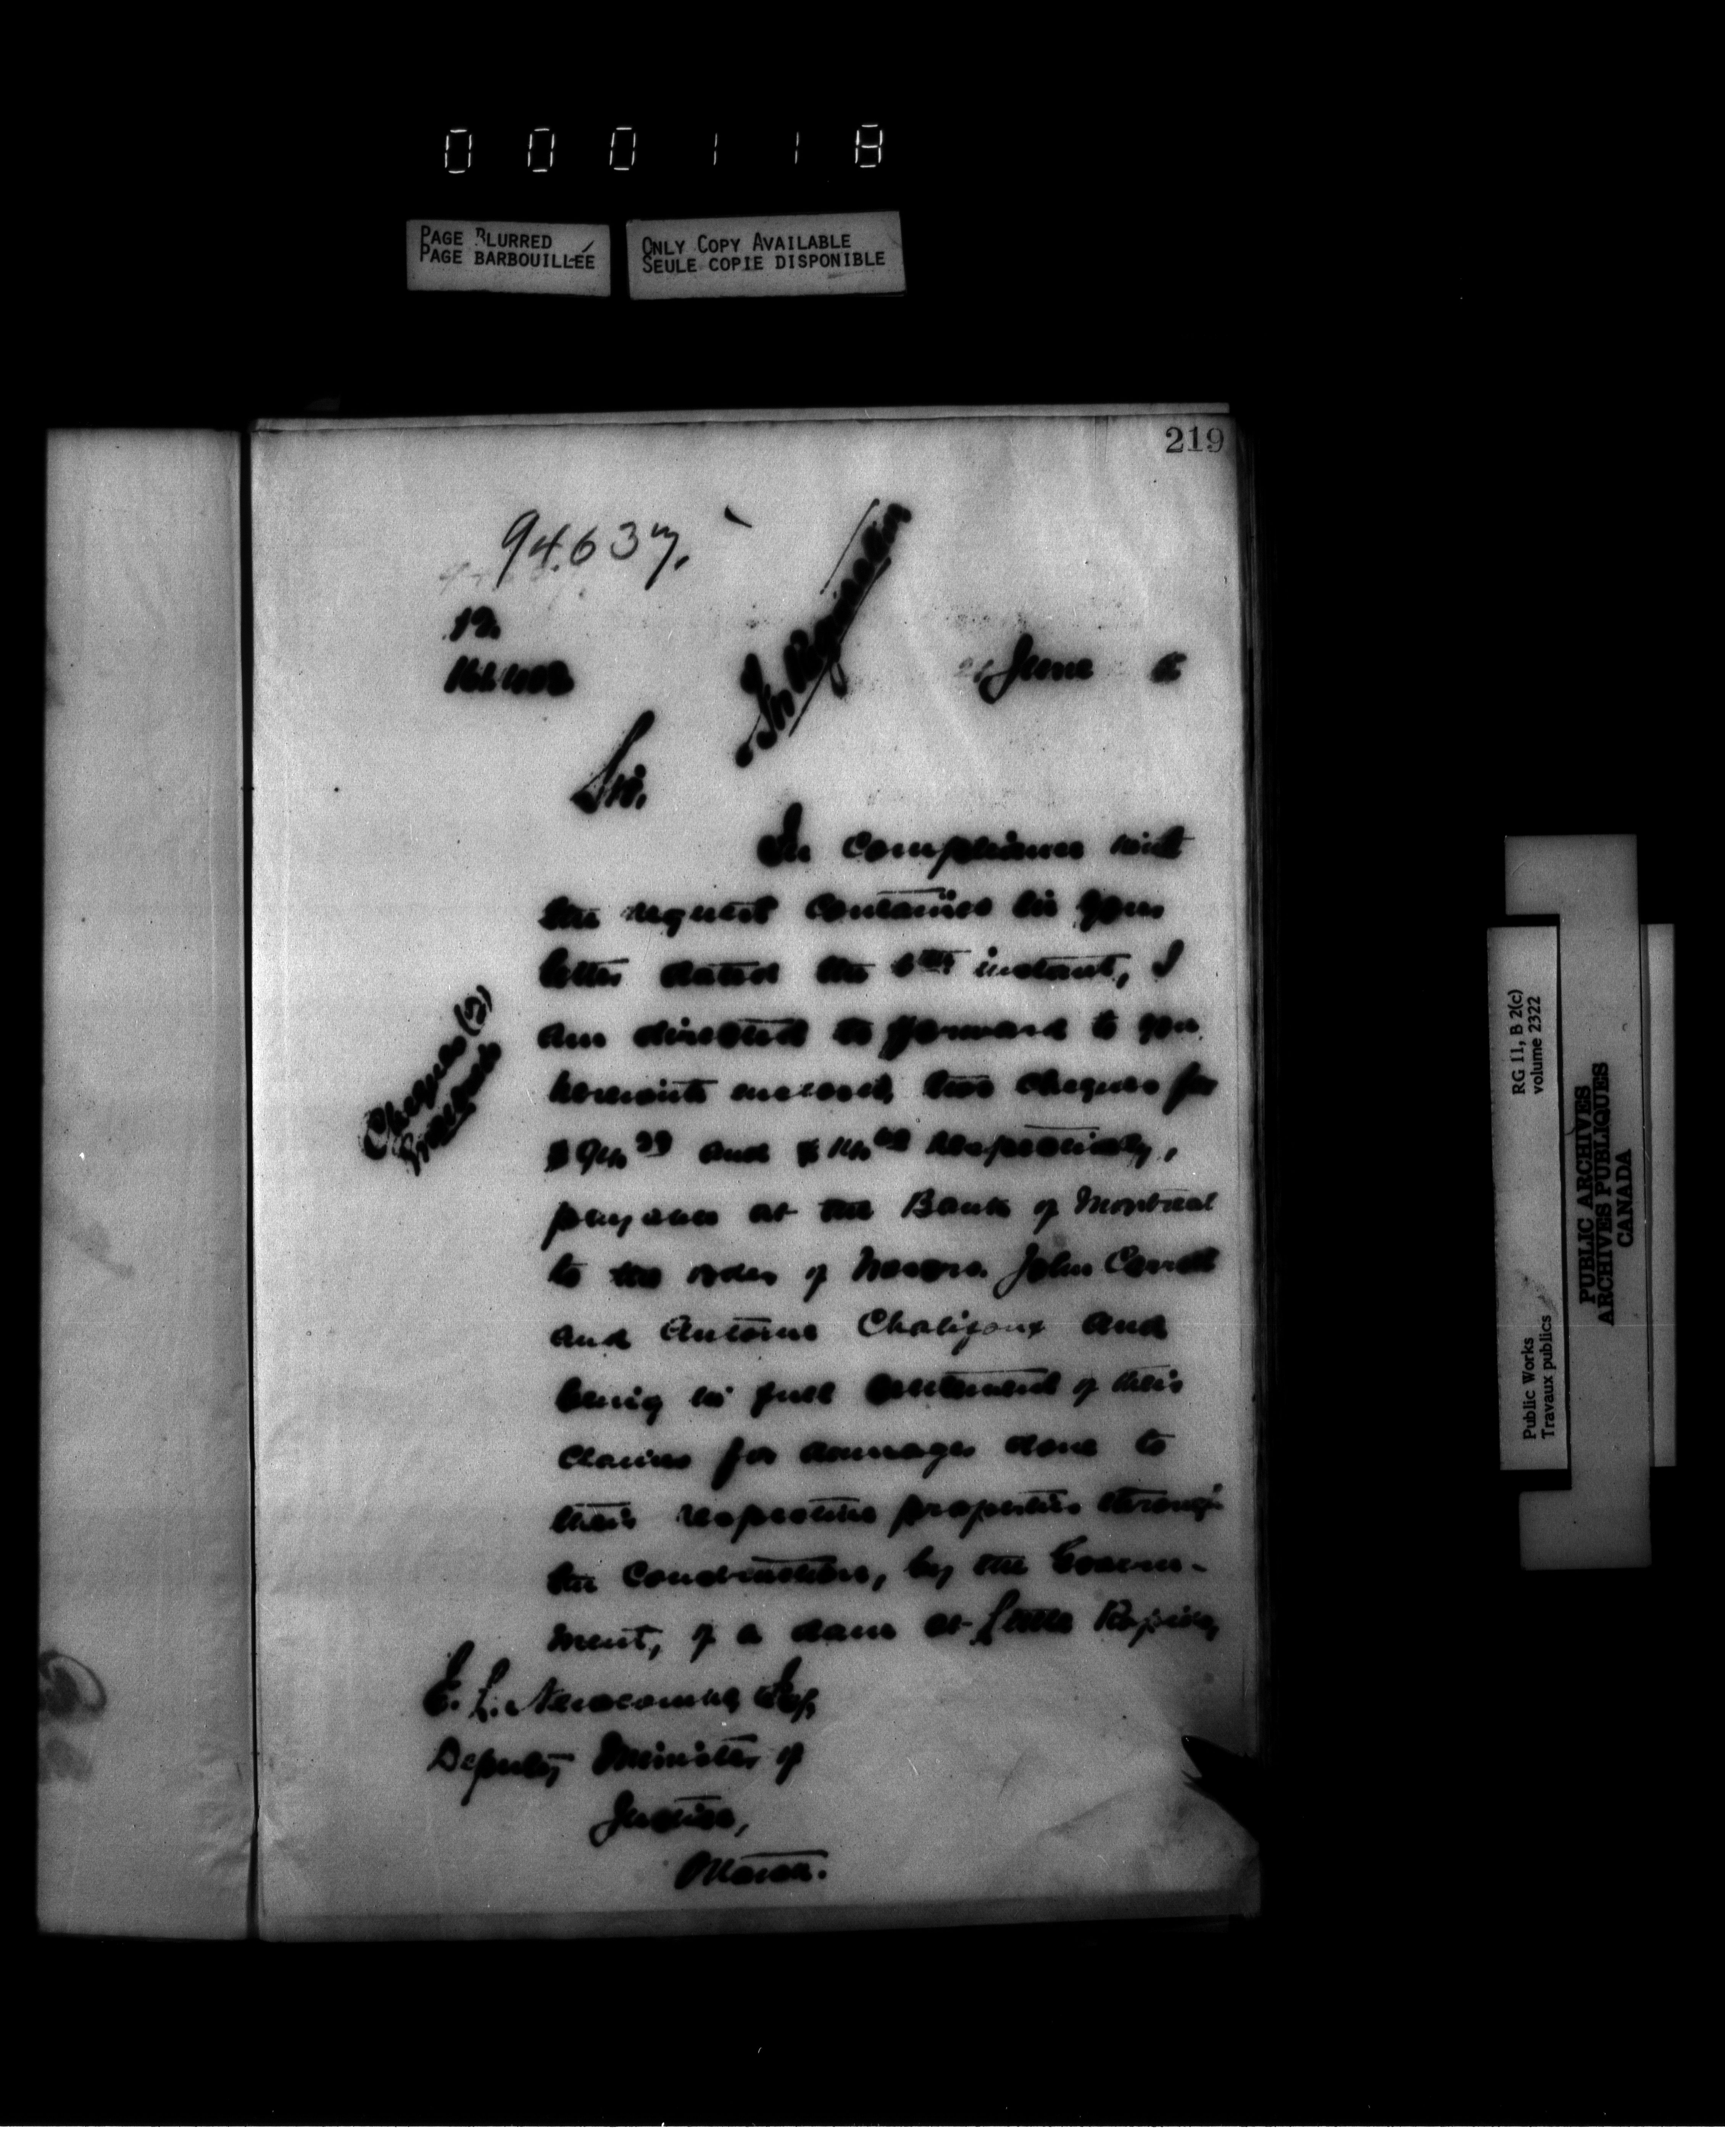 000118
PAGE BLURRED
PAGE BARBOUILLÉE
ONLY COPY AVAILABLE
SEULE COPIE DISPONIBLE
219
94637.
12.
June
Sir.
In compliance with
the request contained in your
letter dated the 6th instant, I
am directed to forward to you
herewith enclosed, two cheques for
and respectively,
payable at the Bank of Montreal
to the order of Messrs. John Carroll
and Antoine Chalifoux and
being in full settlement of their
claims for damages done to
their respective properties through
the construction, by the Govern-
ment, of a dam at Little Rapids,
Cheques (2)
E. L. Newcombe, Esq,
Deputy Minister of
Justice,
Ottawa.
RG 11, B 2(c)
volume 2322
Public Works
Travaux publics
PUBLIC ARCHIVES
ARCHIVES PUBLIQUES
CANADA